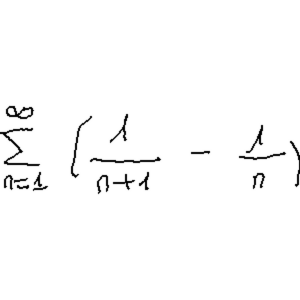 ∑_{n=1}^{∞} (1/(n+1) - 1/n)